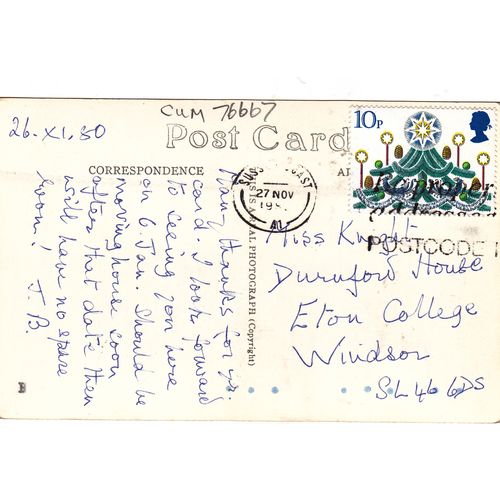 CUM 76667
26.XI.80
Post Card
CORRESPONDENCE
10P
27 NOV
AL PHOTOGRAPH (Copyright)
Many thanks for yr.
card. I look forward
to seeing you here
on 6 Jan. Should be
moving house soon
after that date then
will have no spare
room!
J. B.
POSTCODE
Miss Knight
Durnford House
Eton College
Windsor
SL46 6DS
B